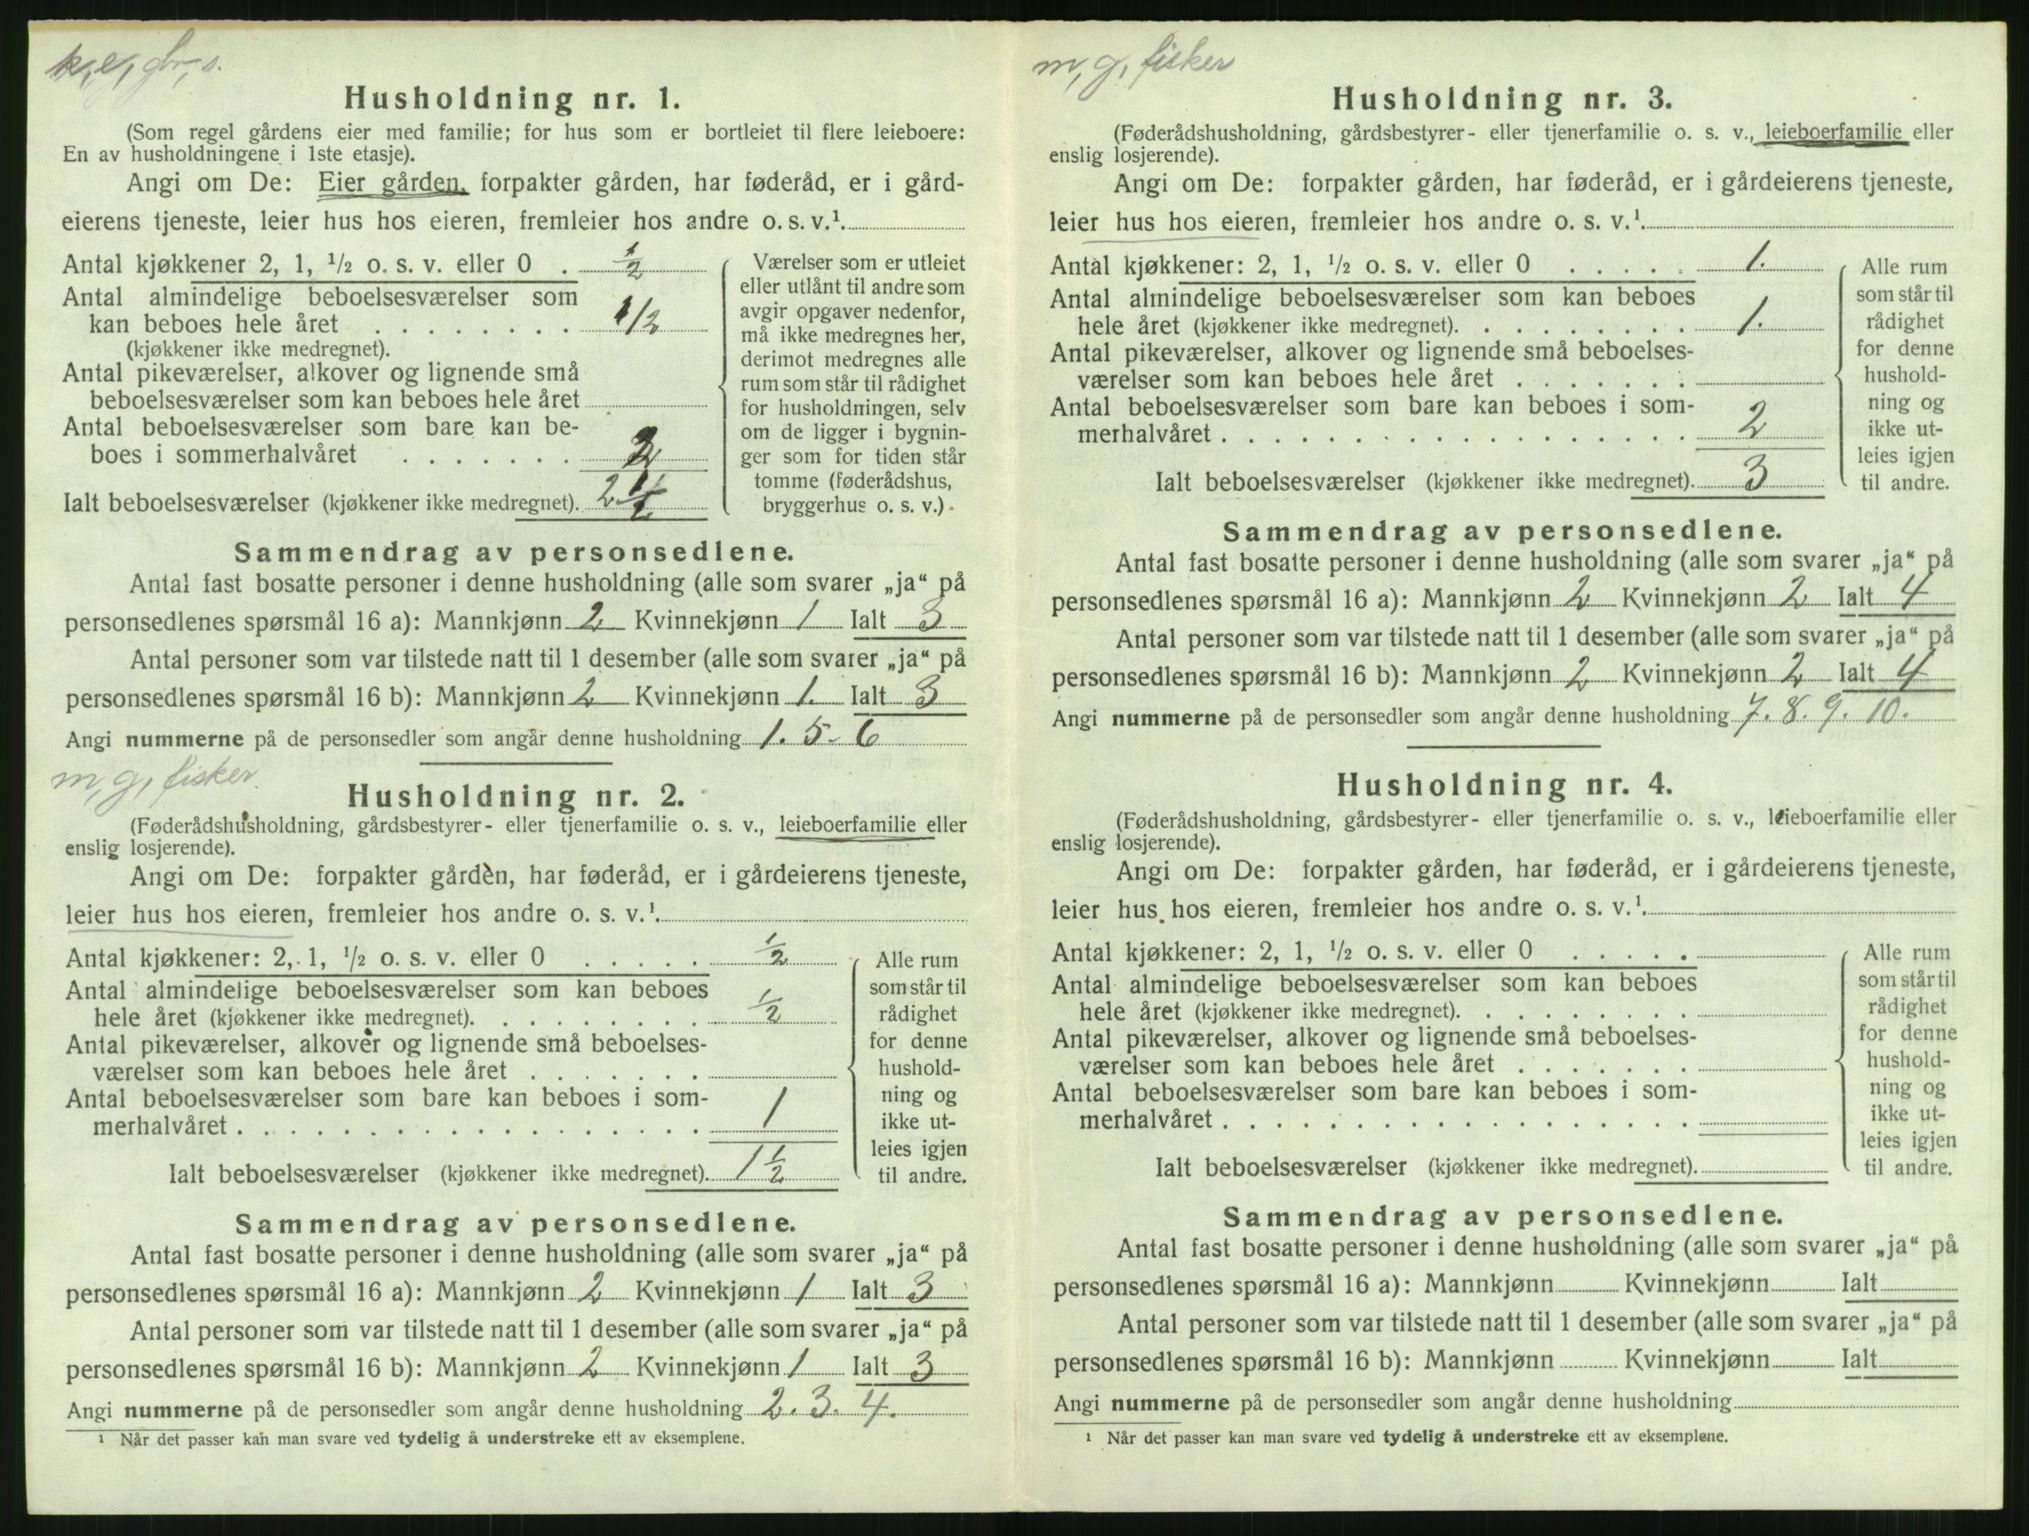 k, e, gbr, s.
Husholdning nr. 1.
(Som regel gårdens eier med familie; for hus som er bortleiet til flere leieboere:
En av husholdningene i 1ste etasje).
Angi om De: Eier gården, forpakter gården, har føderåd, er i gård-
eierens tjeneste, leier hus hos eieren, fremleier hos andre o. s. v.¹
Antal kjøkkener 2, 1, ½ o. s. v. eller 0 . ½
Antal almindelige beboelsesværelser som
kan beboes hele året . . . . . . . . . 1/2
(kjøkkener ikke medregnet).
Antal pikeværelser, alkover og lignende små
beboelsesværelser som kan beboes hele året
Antal beboelsesværelser som bare kan be-
boes i sommerhalvåret . . . . . . . 2
Ialt beboelsesværelser (kjøkkener ikke medregnet). 2 ½
Værelser som er utleiet
eller utlånt til andre som
avgir opgaver nedenfor,
må ikke medregnes her,
derimot medregnes alle
rum som står til rådighet
for husholdningen, selv
om de ligger i bygnin-
ger som for tiden står
tomme (føderådshus,
bryggerhus o. s. v.)
Sammendrag av personsedlene.
Antal fast bosatte personer i denne husholdning (alle som svarer „ja“ på
personsedlenes spørsmål 16 a): Mannkjønn 2 Kvinnekjønn 1 Ialt 3
Antal personer som var tilstede natt til 1 desember (alle som svarer „ja“ på
personsedlenes spørsmål 16 b): Mannkjønn 2 Kvinnekjønn 1. Ialt 3
Angi nummerne på de personsedler som angår denne husholdning 1. 5- 6
m, g, fisker
Husholdning nr. 2.
(Føderådshusholdning, gårdsbestyrer- eller tjenerfamilie o. s. v., leieboerfamilie eller
enslig losjerende).
Angi om De: forpakter gården, har føderåd, er i gårdeierens tjeneste,
leier hus hos eieren, fremleier hos andre o. s. v.¹
Antal kjøkkener: 2, 1, ½ o. s. v. eller 0 . . . . . ½
Antal almindelige beboelsesværelser som kan beboes
hele året (kjøkkener ikke medregnet). . . . . . . . . ½
Antal pikeværelser, alkover og lignende små beboelses-
værelser som kan beboes hele året . . . . . . .
Antal beboelsesværelser som bare kan beboes i som-
merhalvåret . . . . . . . . . . . . . . . . . . 1
Ialt beboelsesværelser (kjøkkener ikke medregnet). 1 ½
Alle rum
som står til
rådighet
for denne
hushold-
ning og
ikke ut-
leies igjen
til andre.
Sammendrag av personsedlene.
Antal fast bosatte personer i denne husholdning (alle som svarer „ja“ på
personsedlenes spørsmål 16 a): Mannkjønn 2 Kvinnekjønn 1 Ialt 3
Antal personer som var tilstede natt til 1 desember (alle som svarer „ja“ på
personsedlenes spørsmål 16 b): Mannkjønn 2 Kvinnekjønn 1 Ialt 3
Angi nummerne på de personsedler som angår denne husholdning 2. 3. 4.
¹ Når det passer kan man svare ved tydelig å understreke ett av eksemplene.
m, g, fisker
Husholdning nr. 3.
(Føderådshusholdning, gårdsbestyrer- eller tjenerfamilie o. s. v., leieboerfamilie eller
enslig losjerende).
Angi om De: forpakter gården, har føderåd, er i gårdeierens tjeneste,
leier hus hos eieren, fremleier hos andre o. s. v.¹
Antal kjøkkener: 2, 1, ½ o. s. v. eller 0 . . . . . 1.
Antal almindelige beboelsesværelser som kan beboes
hele året (kjøkkener ikke medregnet). . . . . . . . . 1.
Antal pikeværelser, alkover og lignende små beboelses-
værelser som kan beboes hele året . . . . . . .
Antal beboelsesværelser som bare kan beboes i som-
merhalvåret . . . . . . . . . . . . . . . . . . 2
Ialt beboelsesværelser (kjøkkener ikke medregnet). 3
Alle rum
som står til
rådighet
for denne
hushold-
ning og
ikke ut-
leies igjen
til andre.
Sammendrag av personsedlene.
Antal fast bosatte personer i denne husholdning (alle som svarer „ja“ på
personsedlenes spørsmål 16 a): Mannkjønn 2 Kvinnekjønn 2 Ialt 4
Antal personer som var tilstede natt til 1 desember (alle som svarer „ja“ på
personsedlenes spørsmål 16 b): Mannkjønn 2 Kvinnekjønn 2 Ialt 4
Angi nummerne på de personsedler som angår denne husholdning 7. 8. 9. 10.
Husholdning nr. 4.
(Føderådshusholdning, gårdsbestyrer- eller tjenerfamilie o. s. v., leieboerfamilie eller
enslig losjerende).
Angi om De: forpakter gården, har føderåd, er i gårdeierens tjeneste,
leier hus hos eieren, fremleier hos andre o. s. v.¹
Antal kjøkkener: 2, 1, ½ o. s. v. eller 0 . . . . .
Antal almindelige beboelsesværelser som kan beboes
hele året (kjøkkener ikke medregnet). . . . . . . . .
Antal pikeværelser, alkover og lignende små beboelses-
værelser som kan beboes hele året . . . . . . .
Antal beboelsesværelser som bare kan beboes i som-
merhalvåret . . . . . . . . . . . . . . . . . .
Ialt beboelsesværelser (kjøkkener ikke medregnet).
Alle rum
som står til
rådighet
for denne
hushold-
ning og
ikke ut-
leies igjen
til andre.
Sammendrag av personsedlene.
Antal fast bosatte personer i denne husholdning (alle som svarer „ja“ på
personsedlenes spørsmål 16 a): Mannkjønn Kvinnekjønn Ialt
Antal personer som var tilstede natt til 1 desember (alle som svarer „ja“ på
personsedlenes spørsmål 16 b): Mannkjønn Kvinnekjønn Ialt
Angi nummerne på de personsedler som angår denne husholdning
¹ Når det passer kan man svare ved tydelig å understreke ett av eksemplene.